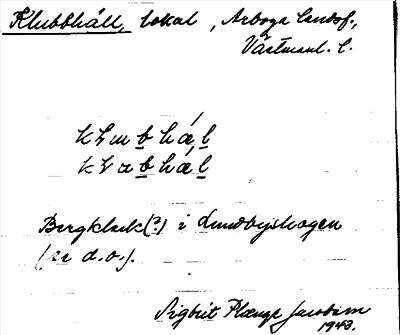 Klubbhäll, lokal, Arboga landsf.,
Västmanl. l.
Bergklack(?) i Lundbyskogen
(se d.o.).
Sigbrit Plænge Jacobson
1943.